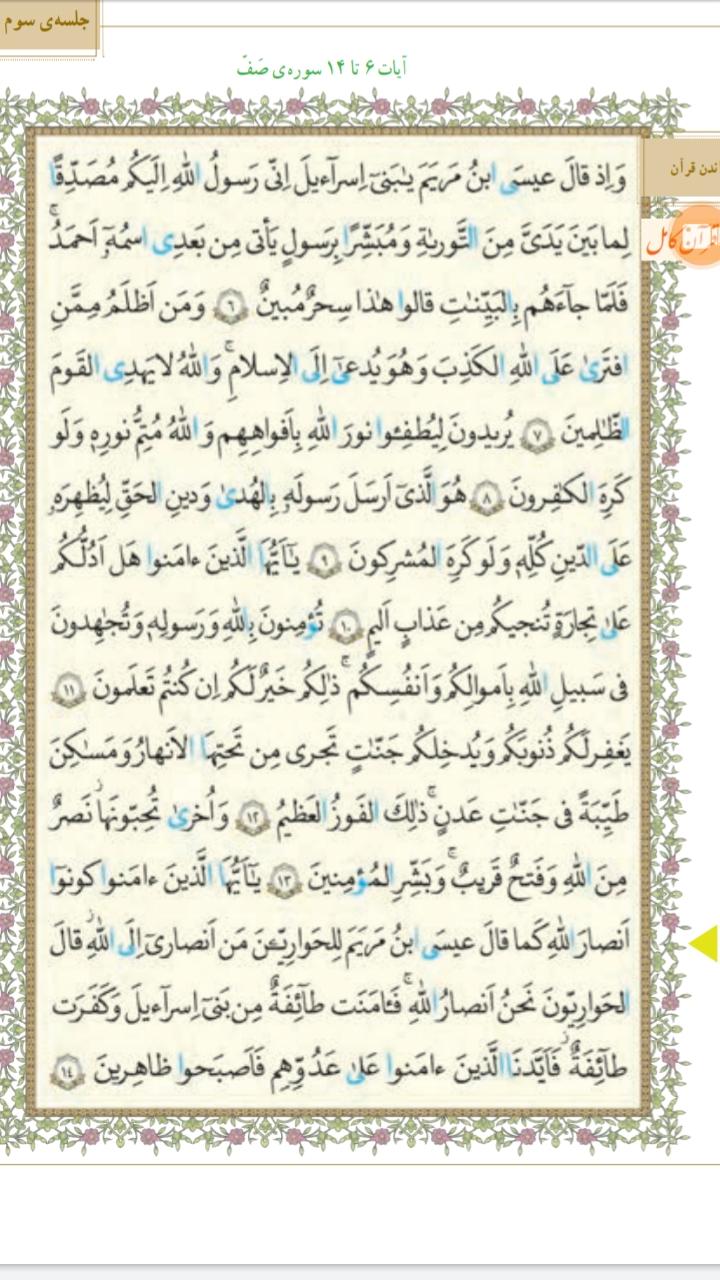 جلسه‌ی سوم
آیات ۶ تا ۱۴ سوره‌ی صَفّ
ندن قرآن
قرآن کامل
وَاِذ قالَ عیسَی ابنُ مَریَمَ یٰبَنیٓ اِسرآءیلَ اِنّی رَسولُ اللّٰهِ اِلَیکُم مُصَدِّقًا
لِما بَینَ یَدَیَّ مِنَ التَّورىٰةِ وَمُبَشِّرًا بِرَسولٍ یَأتی مِن بَعدِی اسمُهٗٓ اَحمَدُ ۚ
فَلَمّا جآءَهُم بِالبَیِّنٰتِ قالوا هٰذا سِحرٌ مُبینٌ ﴿٦﴾ وَمَن اَظلَمُ مِمَّنِ
افتَرىٰ عَلَى اللّٰهِ الکَذِبَ وَهُوَ یُدعىٰٓ اِلَى الاِسلامِ ۚ وَاللّٰهُ لا یَهدِی القَومَ
الظّٰلِمینَ ﴿٧﴾ یُریدونَ لِیُطفِئوا نورَ اللّٰهِ بِاَفواهِهِم وَاللّٰهُ مُتِمُّ نورِهٖ وَلَو
کَرِهَ الکٰفِرونَ ﴿٨﴾ هُوَ الَّذیٓ اَرسَلَ رَسولَهٗ بِالهُدىٰ وَدینِ الحَقِّ لِیُظهِرَهٗ
عَلَى الدّینِ کُلِّهٖ وَلَو کَرِهَ المُشرِکونَ ﴿٩﴾ یٰٓاَیُّهَا الَّذینَ ءامَنوا هَل اَدُلُّکُم
عَلىٰ تِجارَةٍ تُنجیکُم مِن عَذابٍ اَلیمٍ ﴿١٠﴾ تُؤمِنونَ بِاللّٰهِ وَرَسولِهٖ وَتُجٰهِدونَ
فی سَبیلِ اللّٰهِ بِاَموالِکُم وَاَنفُسِکُم ۚ ذٰلِکُم خَیرٌ لَکُم اِن کُنتُم تَعلَمونَ ﴿١١﴾
یَغفِر لَکُم ذُنوبَکُم وَیُدخِلکُم جَنّٰتٍ تَجری مِن تَحتِهَا الاَنهارُ وَمَسٰکِنَ
طَیِّبَةً فی جَنّٰتِ عَدنٍ ۚ ذٰلِکَ الفَوزُ العَظیمُ ﴿١٢﴾ وَاُخرىٰ تُحِبّونَها ۖ نَصرٌ
مِنَ اللّٰهِ وَفَتحٌ قَریبٌ ۗ وَبَشِّرِ المُؤمِنینَ ﴿١٣﴾ یٰٓاَیُّهَا الَّذینَ ءامَنوا کونوٓا
اَنصارَ اللّٰهِ کَما قالَ عیسَی ابنُ مَریَمَ لِلحَوارِیّٖنَ مَن اَنصاریٓ اِلَى اللّٰهِ ۖ قالَ
الحَوارِیّونَ نَحنُ اَنصارُ اللّٰهِ ۚ فَـٔامَنَت طآئِفَةٌ مِن بَنیٓ اِسرآءیلَ وَکَفَرَت
طآئِفَةٌ ۖ فَاَیَّدنَا الَّذینَ ءامَنوا عَلىٰ عَدُوِّهِم فَاَصبَحوا ظاهِرینَ ﴿١٤﴾